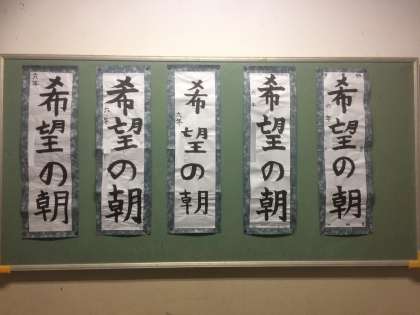 希望の朝
六年
希望の朝
六年
希望の朝
六年
希望の朝
六年
希望の朝